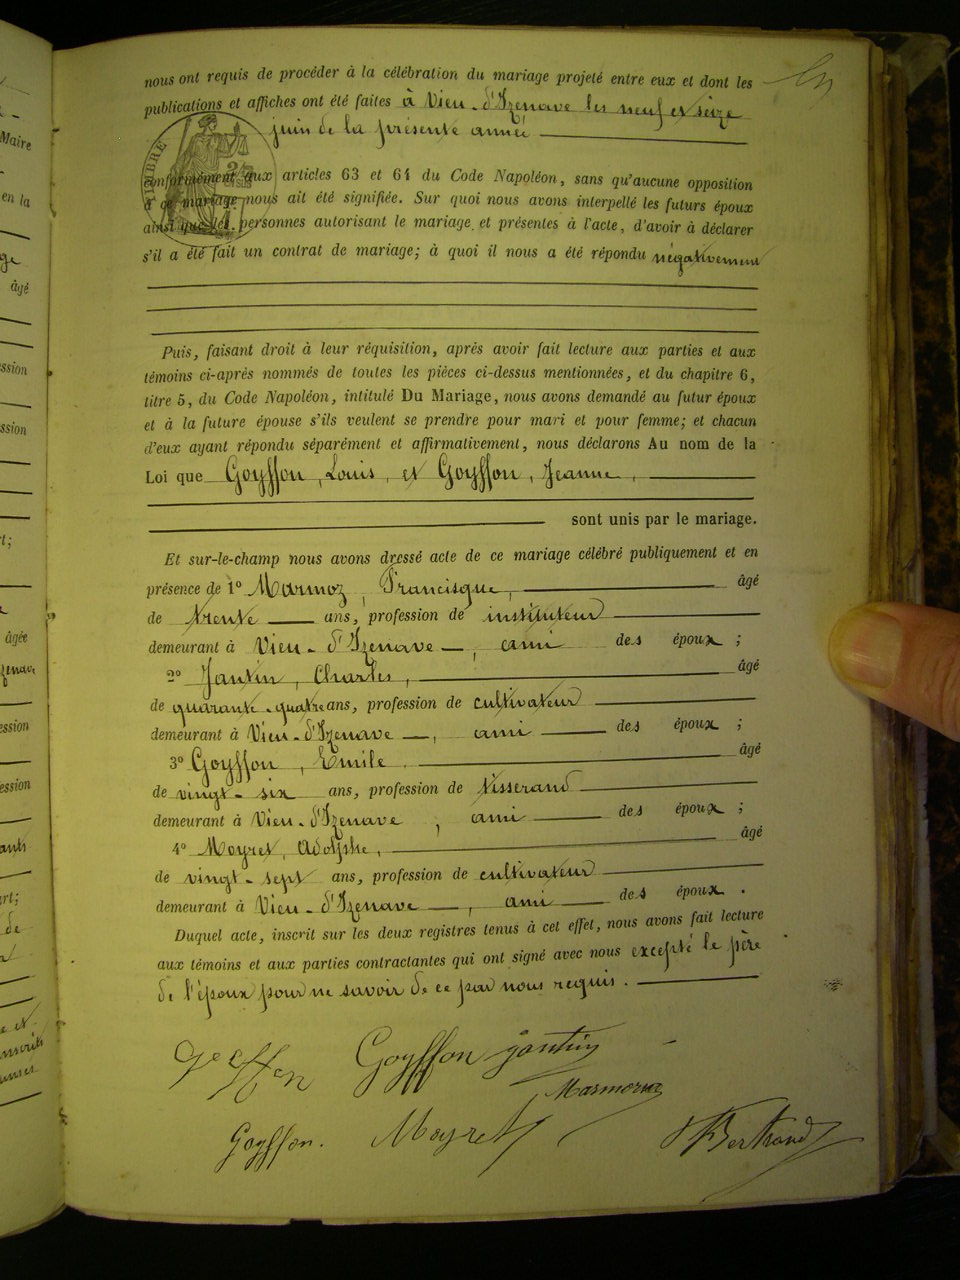 nous ont requis de procéder à la célébration du mariage projeté entre eux et dont les
publications et affiches ont été faites à Vieu-d'Izenave les neuf et seize
juin de la présente année
conformément aux articles 63 et 64 du Code Napoléon, sans qu'aucune opposition
à ce mariage nous ait été signifiée. Sur quoi nous avons interpellé les futurs époux
ainsi que les personnes autorisant le mariage et présentes à l'acte, d'avoir à déclarer
s'il a été fait un contrat de mariage; à quoi il nous a été répondu négativement
Puis, faisant droit à leur réquisition, après avoir fait lecture aux parties et aux
témoins ci-après nommés de toutes les pièces ci-dessus mentionnées, et du chapitre 6,
titre 5, du Code Napoléon, intitulé Du Mariage, nous avons demandé au futur époux
et à la future épouse s'ils veulent se prendre pour mari et pour femme; et chacun
d'eux ayant répondu séparément et affirmativement, nous déclarons Au nom de la
Loi que Goyffon, Louis, et Goyffon, Jeanne,
sont unis par le mariage.
Et sur-le-champ nous avons dressé acte de ce mariage célébré publiquement et en
présence de 1º Marmoz, Francisque, âgé
de trente ans, profession de instituteur
demeurant à Vieu-d'Izenave, ami des époux;
2º Jantin, Charles, âgé
de quarante-quatre ans, profession de cultivateur
demeurant à Vieu-d'Izenave, ami des époux;
3º Goyffon, Emile âgé
de vingt-six ans, profession de tisserand
demeurant à Vieu-d'Izenave, ami des époux;
4º Meyret, Adolphe, âgé
de vingt-sept ans, profession de cultivateur
demeurant à Vieu-d'Izenave, ami des époux.
Duquel acte, inscrit sur les deux registres tenus à cet effet, nous avons fait lecture
aux témoins et aux parties contractantes qui ont signé avec nous excepté le père
de l'époux pour ne savoir de ce par nous requis.
Goyffon jantin
Marmoz
Goyffon. Meyret Bertrand